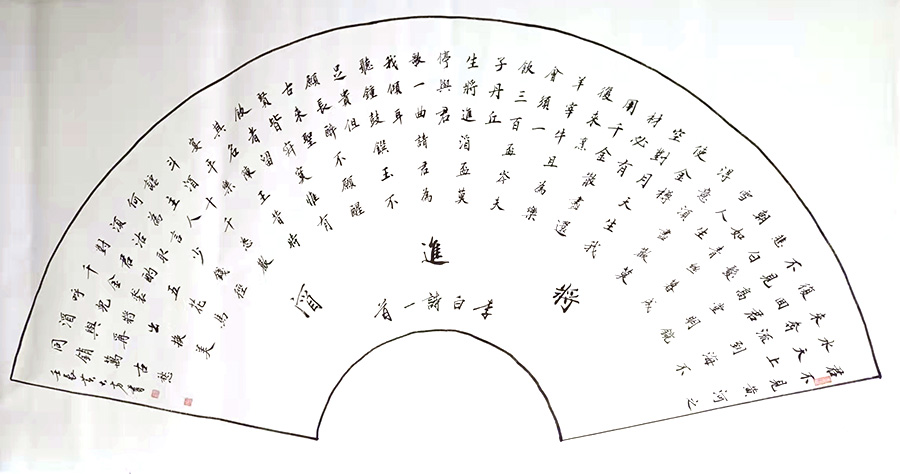 將進酒
李白詩一首
君不見黃河之
水天上
來奔流到海不
復回君
不見高堂明鏡
悲白髮
朝如青絲暮成
雪人生
得意須盡歡莫
使金樽
空對月天生我
材必有
用千金散盡還
復來烹
羊宰牛且為樂
會須一
飲三百盃岑夫
子丹丘
生將進酒盃莫
停與君
歌一曲請君為
我傾耳
聽鍾鼓饌玉不
足貴但
願長醉不願醒
古來聖
賢皆寂寞惟有
飲者留
其名陳王昔時
宴平樂
斗酒十千恣歡
謔主人
何為言少錢徑
須沽取
對君酌五花馬
千金裘
呼兒將出換美
酒與爾
同銷萬古愁